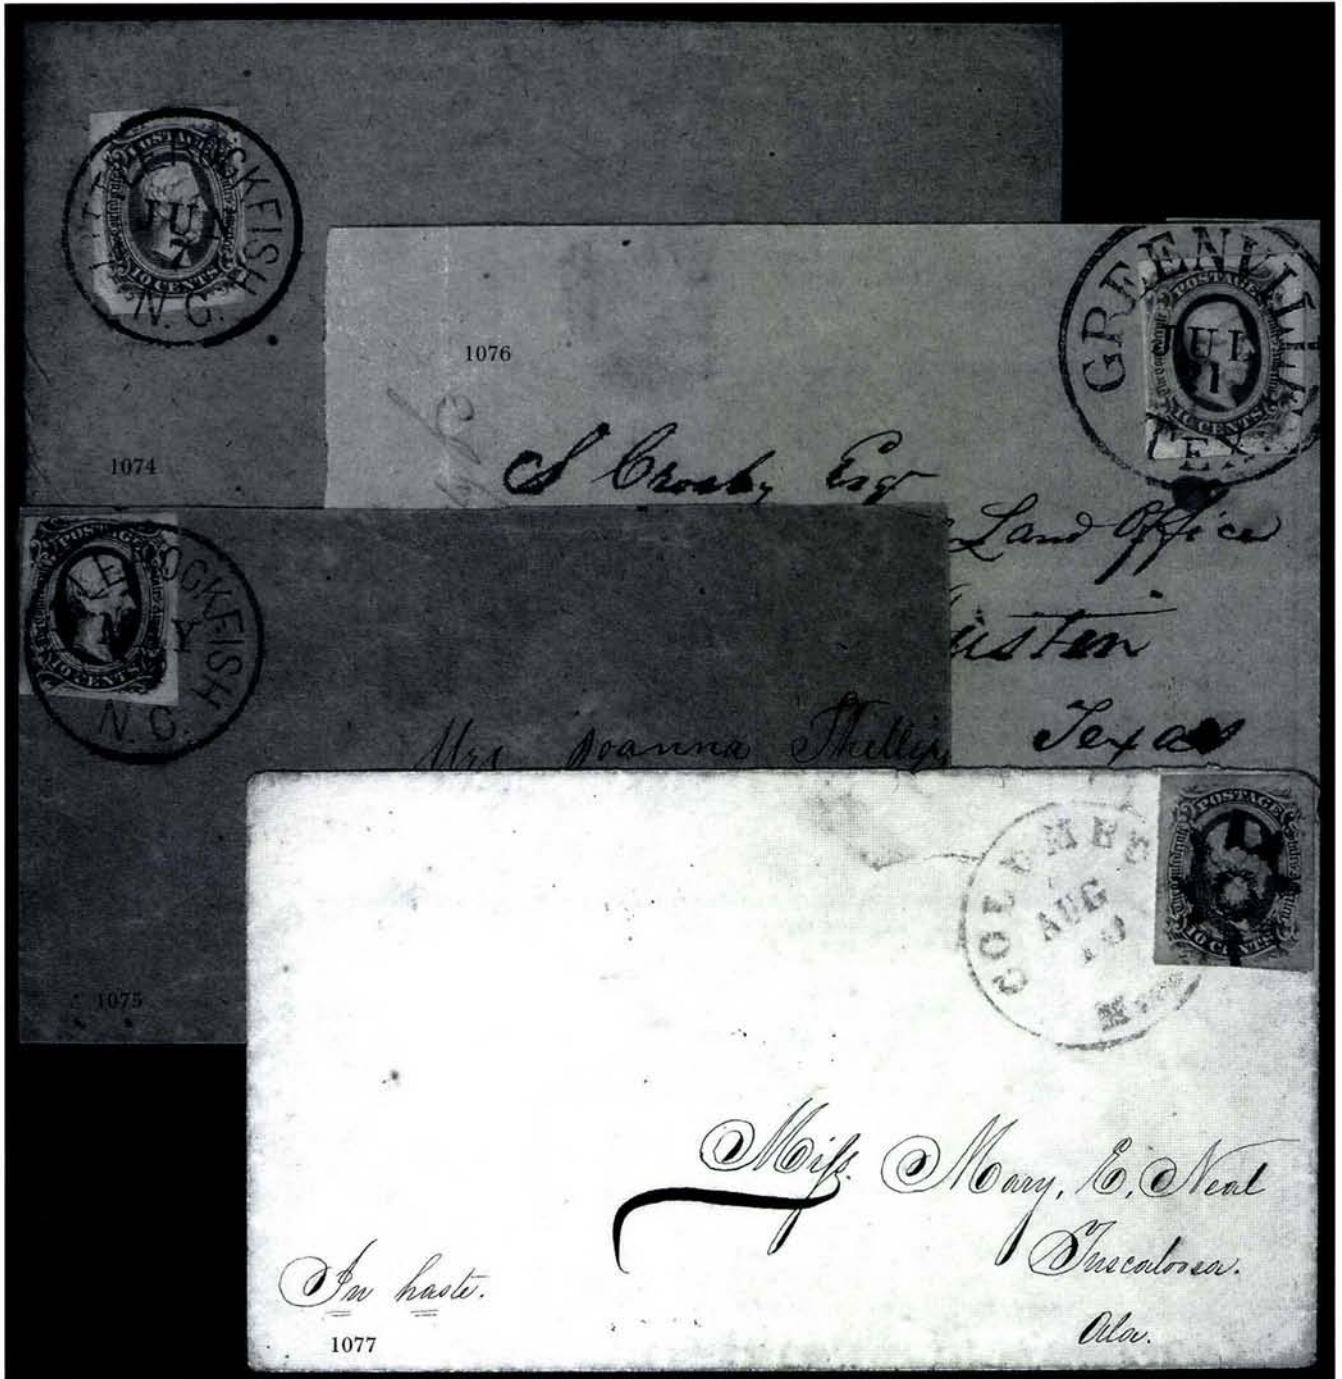 POSTAGE
10 CENTS
LITTLE ROCKFISH
JUN
7
N. C.
1074
1076
GREENVILLE
JUL
1
TEX.
POSTAGE
10 CENTS
S Crosby Esqr
Land Office
Austin
Texas
POSTAGE
10 CENTS
LE ROCKFISH
N. C.
Mrs Joanna
1075
COLUMBUS
AUG
10
Miss
POSTAGE
The Confederate States of America
10 CENTS
Miss. Mary, E. Neal
Tuscaloosa.
Ala.
In haste.
1077